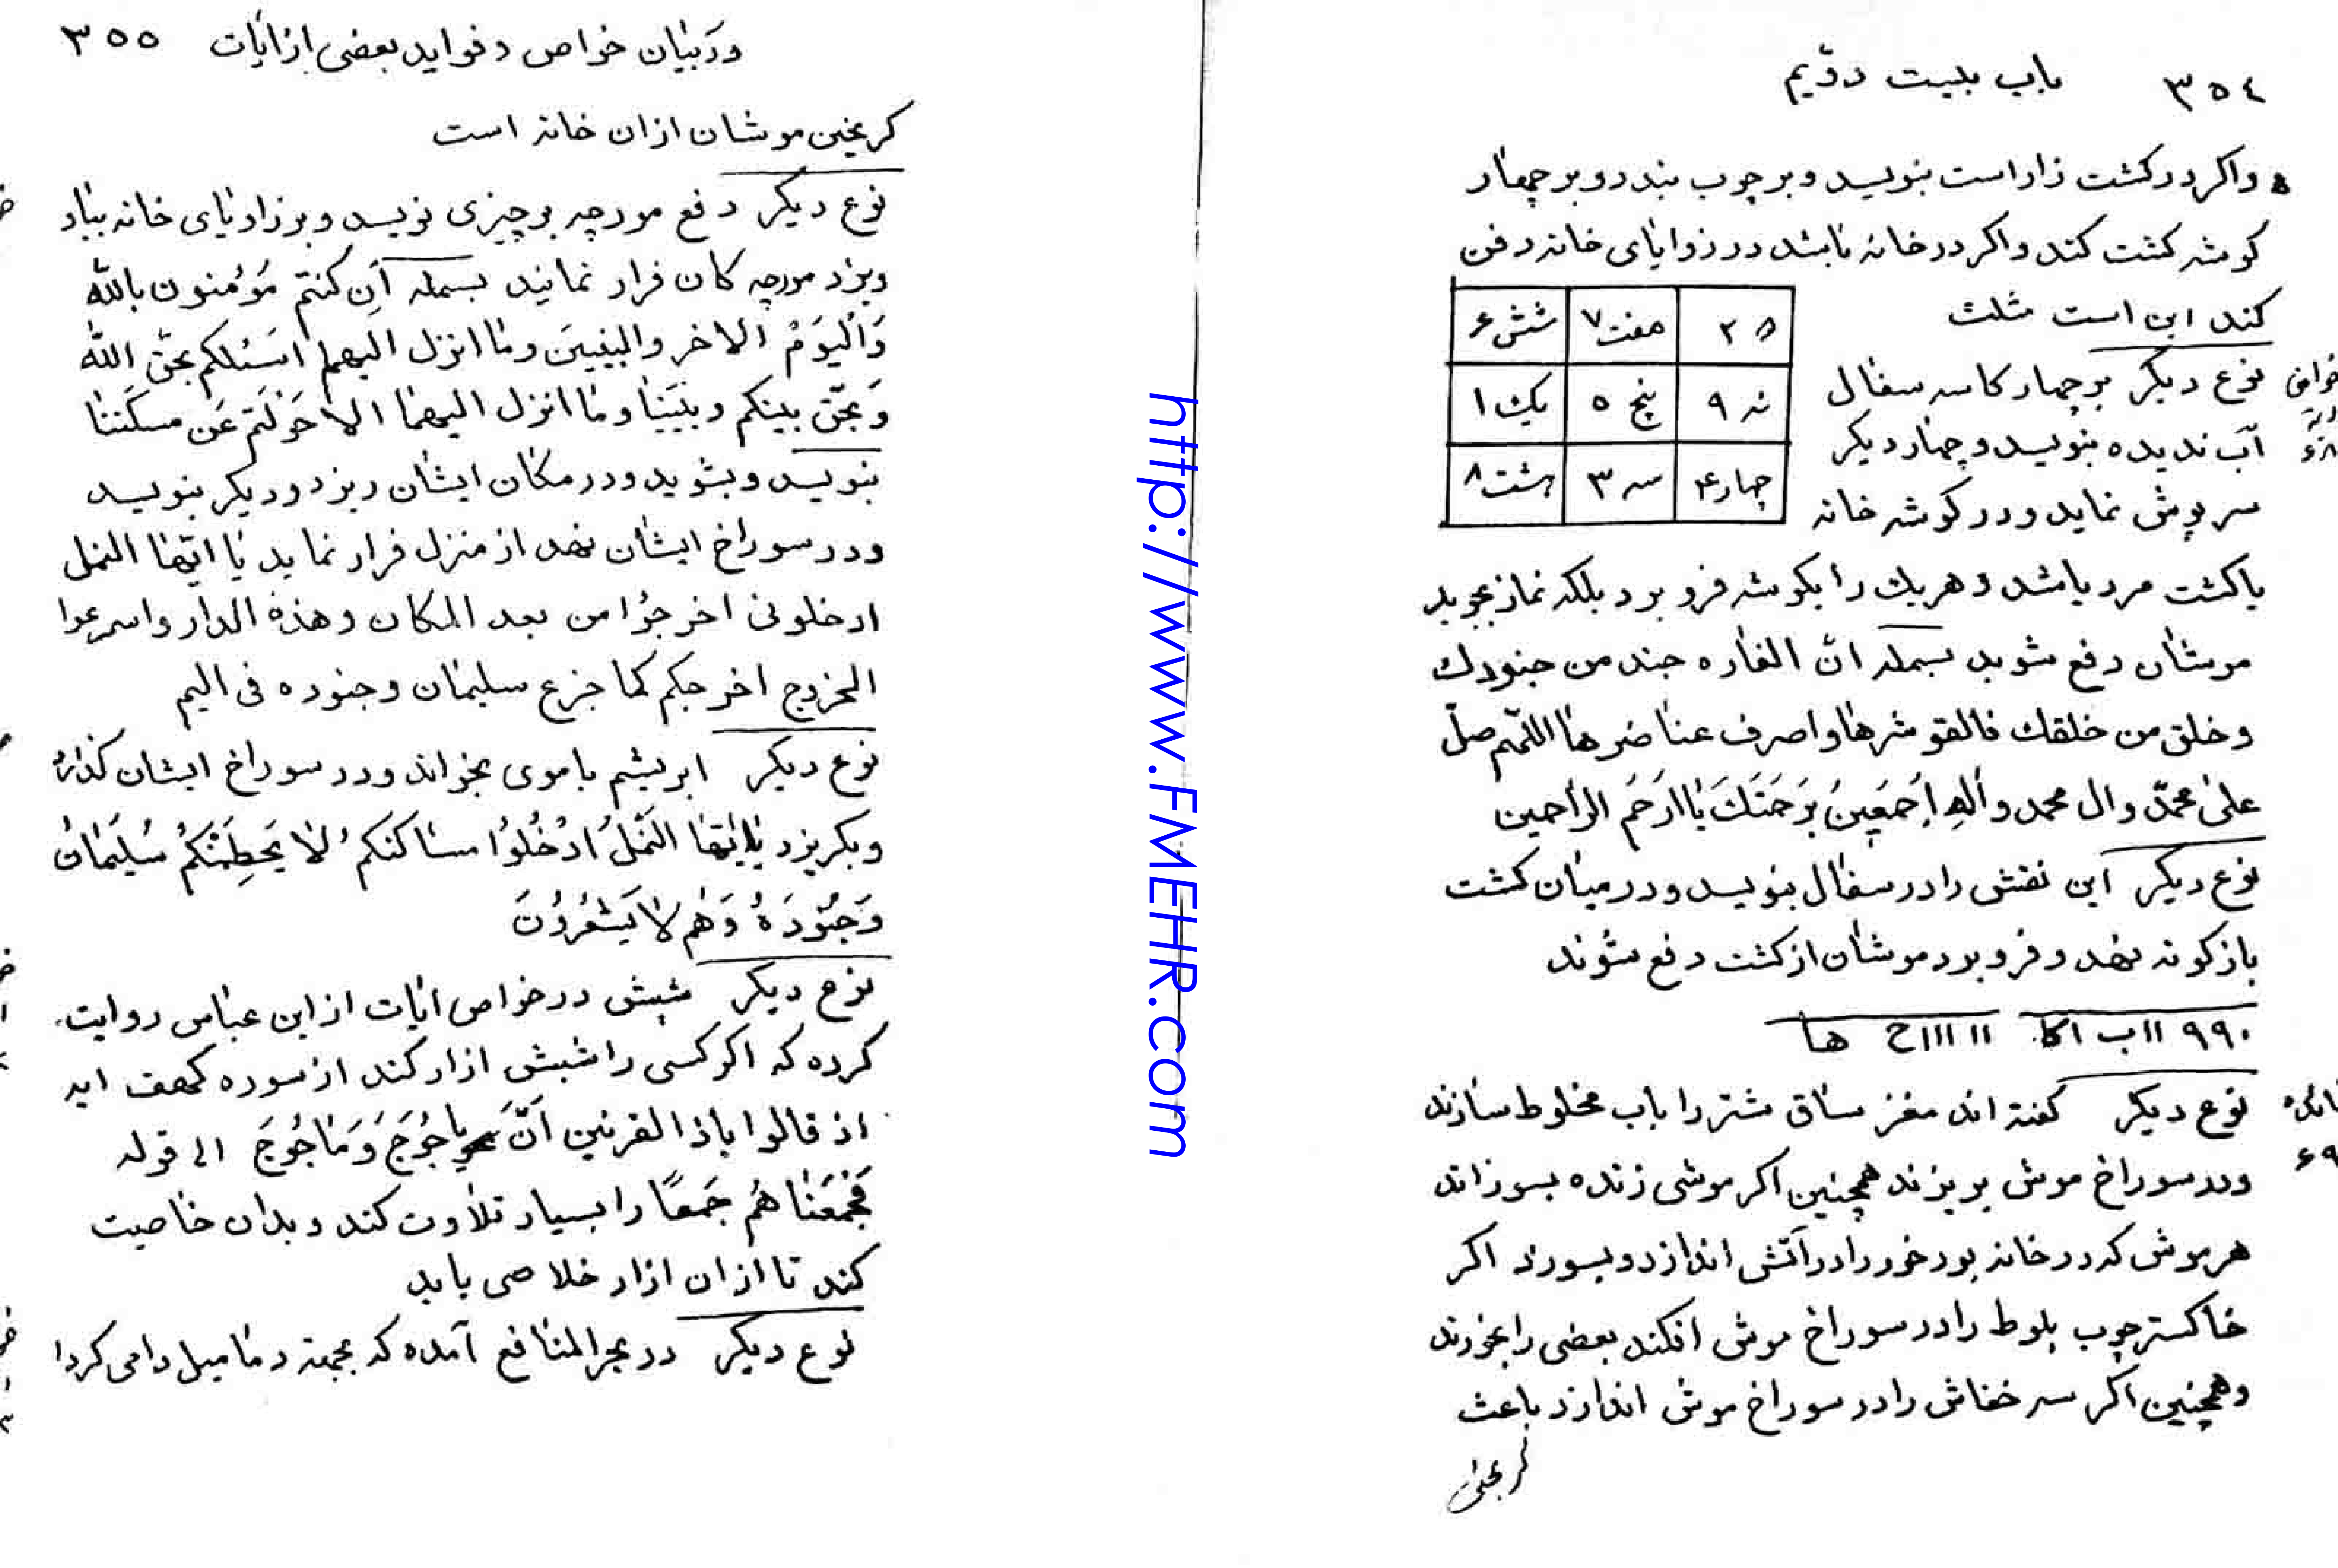 ۳۵٤ باب بیست دوّیم
واکر در کشت زار است بنویسد و بر چوب بندد و بر چهار
کوشه کشت کند و اکر در خانه باشد در زوایای خانه دفن
کند این است مثلث
۲ هفت۷ شش۶
نه ۹ پنج ۵ یك ۱
چهار۴ سه ۳ هشت۸
نوع دیکر بر چهار کاسه سفال
آب ندیده بنویسد و چهار دیکر
سرپوش نماید و در کوشه خانه
یا کشت مرد باشد و هر یك را بکوشه فرو برد بلکه نماز بجوید
موشان دفع شوید بسمله انّ الفاره جند من جنودك
و خلق من خلقك فالقو شرها و اصرف عنا ضرها اللّهم صلّ
علی محمّد و ال محمد و اله اجمعین برحمتك یا ارحم الراحمین
نوع دیکر این نقش را در سفال بنویسد و در میان کشت
بازکونه نهد و فرو برد موشان از کشت دفع شوند
۹۹۰ ۱۱ب اکا ۱۱ ۱۱۱ح ها
نوع دیکر کفته اند مغز ساق شتر را باب مخلوط سازند
و در سوراخ موش بریزند همچنین اکر موشی زنده بسوزاند
هر موش که در خانه بود خود را در آتش اندازد و بسوزد اکر
خاکستر چوب بلوط را در سوراخ موش افکند بعضی را بخورند
و همچنین اکر سر خفاش را در سوراخ موش اندازد باعث
کریختن
http://www.FMEHR.com
در بیان خواص و فواید بعضی از ایات ۳۵۵
کریختن موشان از ان خانه است
نوع دیکر دفع مورچه بر چیزی نویسد و بر زاویای خانه بباد
ویزد مورچه کان فرار نمایند بسمله ان کنتم مؤمنون بالله
والیوم الاخر والنبیین وما انزل الیهما اسئلکم بحق الله
و بحق بینکم و بیننا وما انزل الیهما الا حولتم عن مسکننا
بنویسد و بشوید و در مکان ایشان ریزد و دیکر بنویسد
و در سوراخ ایشان نهد از منزل فرار نماید یا ایها النمل
ادخلونی اخرجوا من بعد المکان و هذه الدار و اسرعوا
الخروج اخرجکم کما جزع سلیمان و جنوده فی الیم
نوع دیکر ابریشم با موی بخواند و در سوراخ ایشان کذارد
و بکریزد یا ایها النمل ادخلوا مساکنکم لا یحطمنکم سلیمان
و جنوده و هم لا یشعرون
نوع دیکر شپش در خواص ایات از ابن عباس روایت
کرده که اکر کسی را شپش ازار کند از سوره کهف ایه
اذ قالوا یاذا القرنین انّ یاجوج و ماجوج الی قوله
فجمعناهم جمعًا را بسیار تلاوت کند و بدان خاصیت
کند تا از ان ازار خلاصی یابد
نوع دیکر در بحر المنافع آمده که بجهة دمامیل دامی کردا